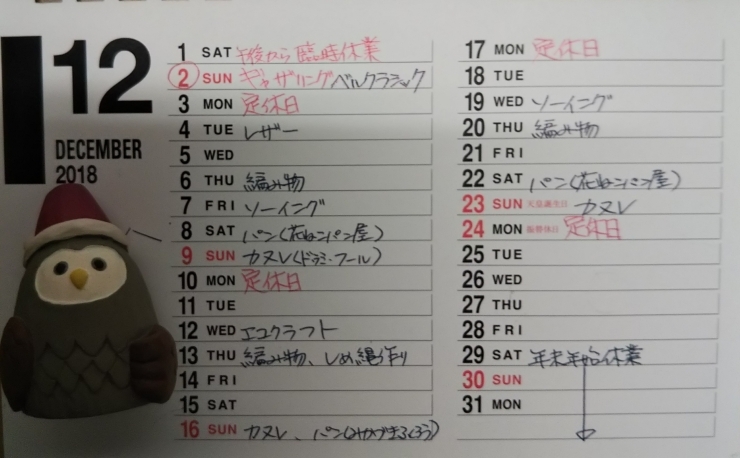 12
DECEMBER
2018
1 SAT 午後から 臨時休業
2 SUN ギャザリングベルクラシック
3 MON 定休日
4 TUE レザー
5 WED
6 THU 編み物
7 FRI ソーイング
8 SAT パン(花ねこパン屋)
9 SUN カヌレ(ドゥミ・フール)
10 MON 定休日
11 TUE
12 WED エコクラフト
13 THU 編み物、しめ縄作り
14 FRI
15 SAT
16 SUN カヌレ、パン(みかづきふくろう)
17 MON 定休日
18 TUE
19 WED ソーイング
20 THU 編み物
21 FRI
22 SAT パン(花ねこパン屋)
23 SUN 天皇誕生日 カヌレ
24 MON 振替休日 定休日
25 TUE
26 WED
27 THU
28 FRI
29 SAT 年末年始休業
30 SUN
31 MON